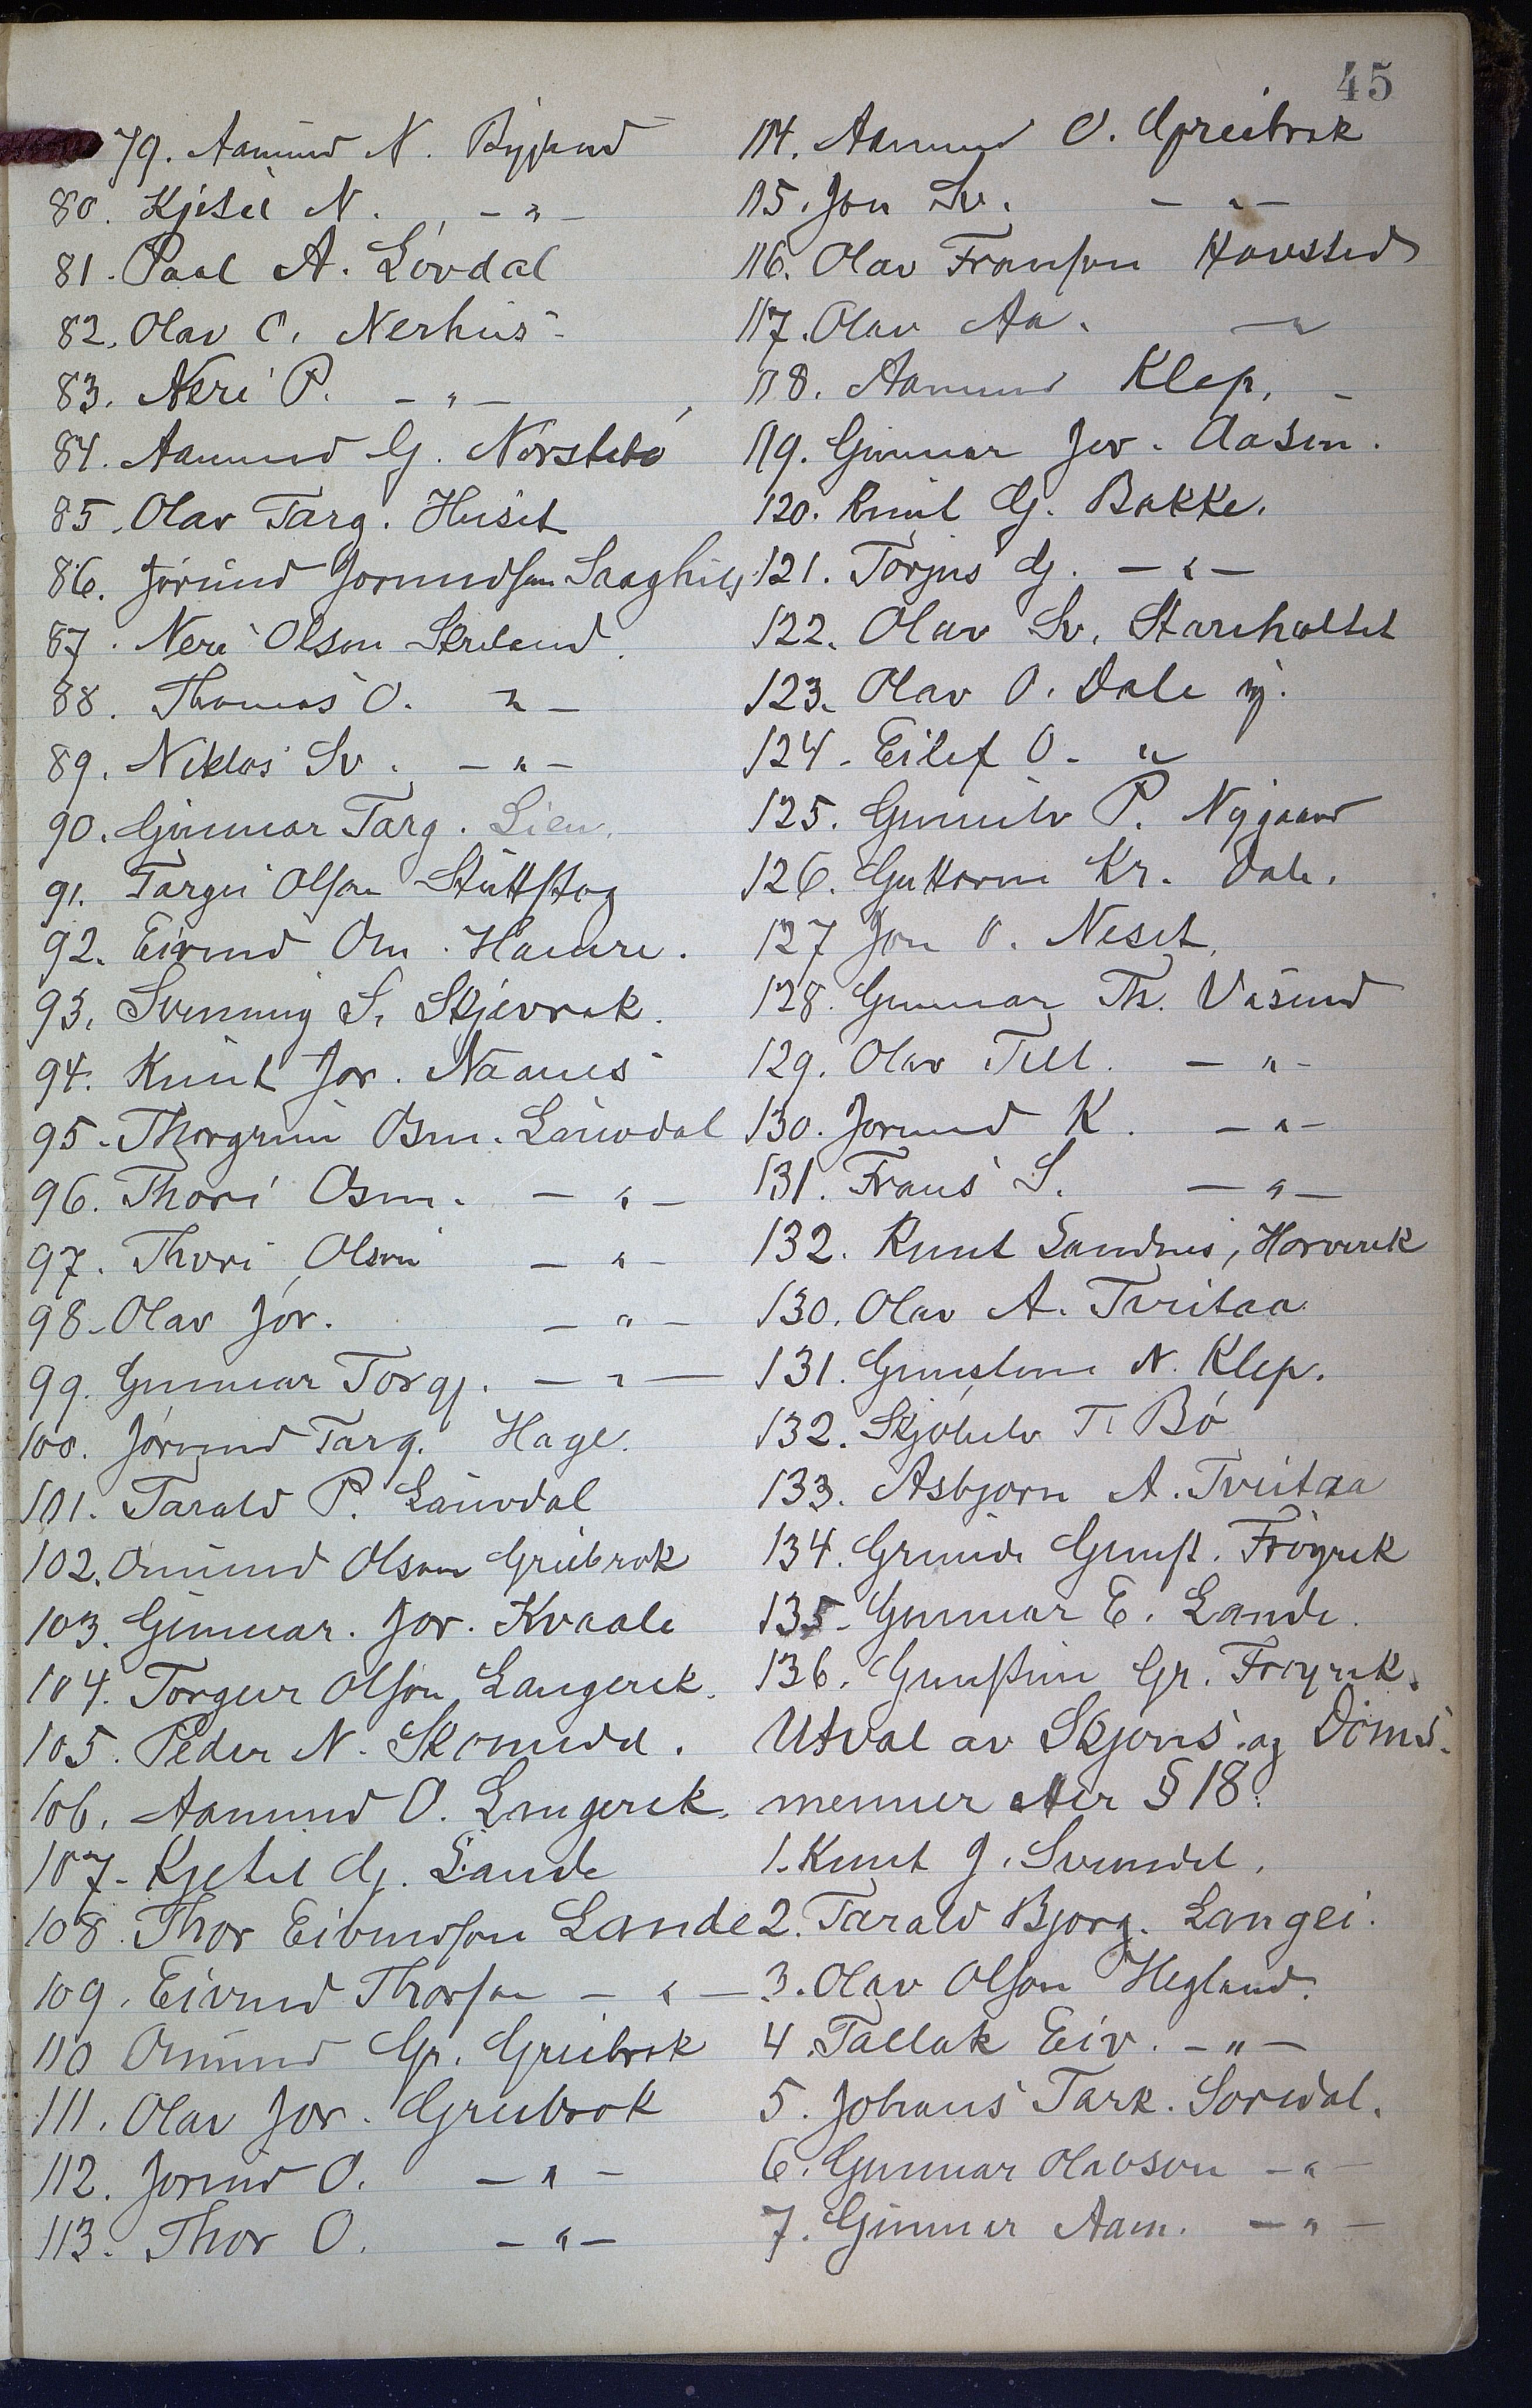 45
79. Aamund N. Bygland
80. Kjetil N. - " -
81. Paal A. Lövdal
82. Olav O. Nerhus
83. Neri P. - " -
84. Aamund G. Norstebö
85. Olav Targ. Huset
86. Jörund Jorundson Saaghus
87. Neri Olson Skreland
88. Thomas O. " -
89. Niklas Sv. - " -
90. Gunnar Targ. Lien.
91. Targei Olson Stuttskog
92. Eivind Om. Hamre.
93. Svenning S. Skjevrak.
94. Knut Jor. Naanes
95. Thorgrim Osm. Lauvdal
96. Thori Osm. - " -
97. Thori Olson - " -
98. Olav Jor. - " -
99. Gunnar Torgj. - " -
100. Jórund Targ. Hage.
101. Tarald P. Lauvdal
102. Omund Olson Greibrok
103. Gunnar. Jor. Kvaale
104. Torgeir Olson Langerek.
105. Peder N. Skomedal.
106. Aamund O. Langerek.
107. Kjetil Dj. Lande
108. Thor Eivindson Lande
109. Eivind Thorson - " -
110 Omund Gr. Greibrok
111. Olav Jor. Greibrok
112. Jorund O. - " -
113. Thor O. - " -
114. Aamund O. Greibrok
115. Jon Sv. - " -
116. Olav Franson Havsted
117. Olav Aa. - "
118. Aamund Klep.
119. Gunnar Jor. Aasen.
120. Knut Dj. Bakke.
121. Torjus Dj. - " -
122. Olav Sv. Stareholtet
123. Olav O. Dale
124. Eilef O. "
125. Gunnulv P. Nygaard
126. Guttorm Kr. Dale.
127 Jon O. Neset.
128. Gunnar Th. Vasend
129. Olav Tell. - " -
130. Jorund K. - " -
131. Frans S. - " -
132. Knut Sandnes, Horverek
130. Olav A. Tveitaa
131. Gunstein N. Klep.
132. Skjöulv T. Bö
133. Asbjorn A. Tveitaa
134. Grunde Gunst. Fröyrek
135. Gunnar E. Lande.
136. Gunstein Gr. Froyrek.
Utval av Skjöns. og Doms-
menner etter § 18.
1. Knut G. Sveindal.
2. Tarald Bjorg. Langei.
3. Olav Olson Hegland.
4. Tallak Eiv. - " -
5. Johans Tark. Sordal.
6. Gunnar Olavson - " -
7. Gunnar Aam. - " -